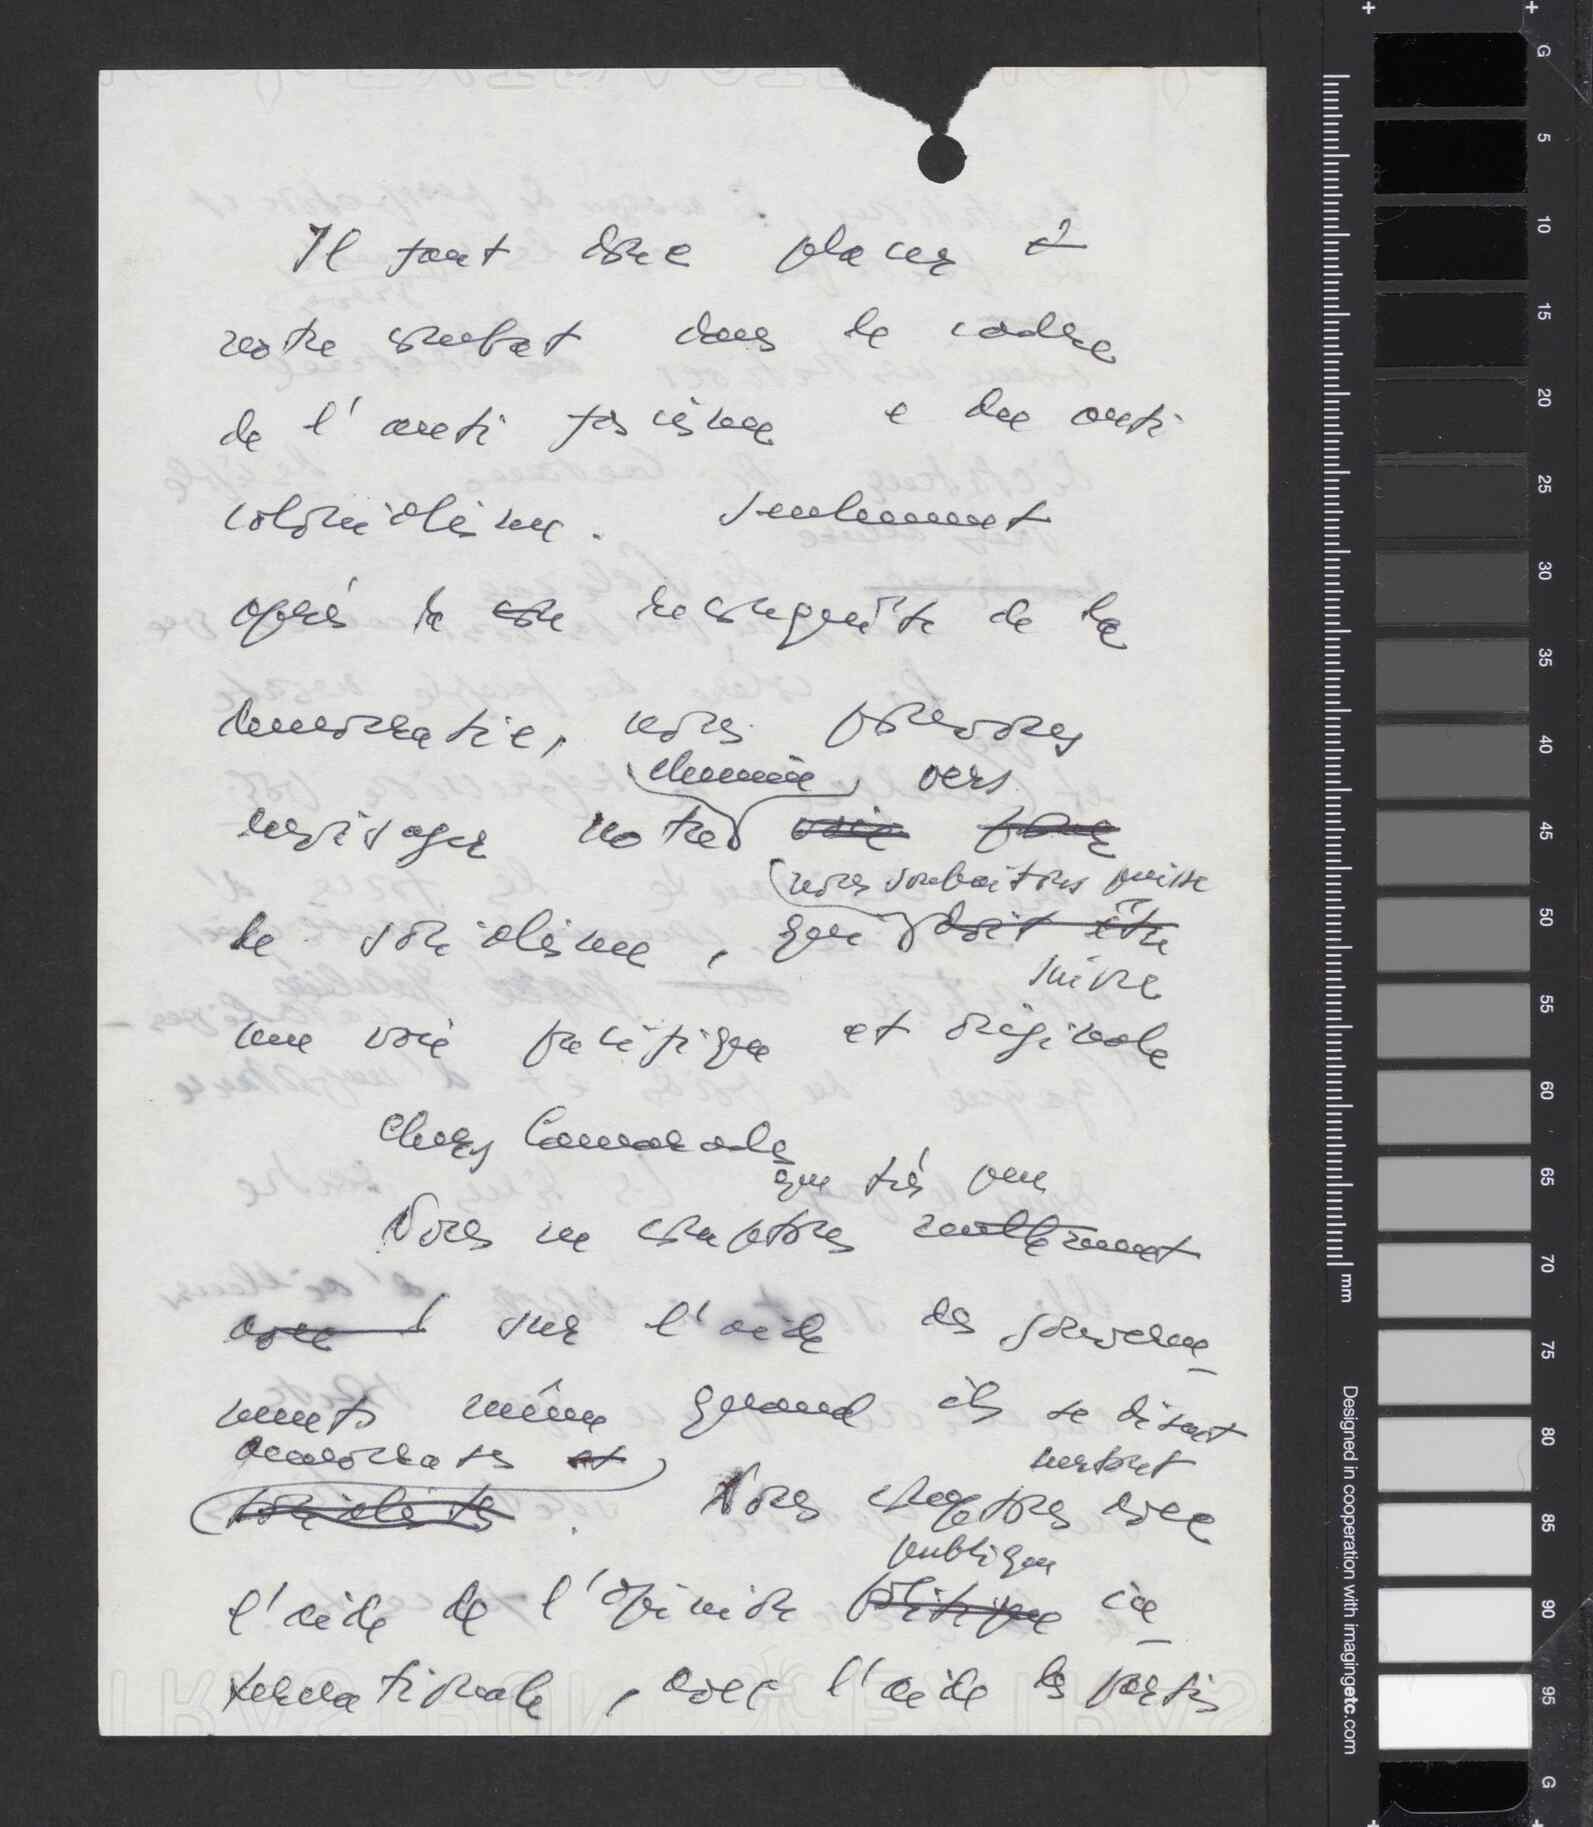 Il faut donc placer
notre combat dans le cadre
de l'anti fascisme e du anti
colonialisme. Seulement
après la con reconquête de la
democratie, nous pouvons
chemin vers
envisager notre voie pour
nous souhaitons puisse
le socialisme, que doit être
suivre
une voie pacifique et originale
Chers Camarades
que très peu
Nous ne comptons nullement
avec sur l'aide des gouverne-
ments même quand ils se disent
democrates et
socialistes. Nous comptons avec
surtout
publique
l'aide de l'opinion politique in-
ternationale, avec l'aide des partis
G
5
10
15
20
25
30
35
40
45
50
55
60
65
70
75
80
85
90
95
G
mm
Designed in cooperation with imagingetc.com